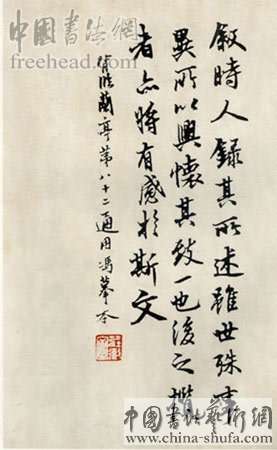 中國書法網
freehead.com
叙時人錄其所述雖世殊事
異所以興懷其致一也後之攬
者亦將有感於斯文
臨蘭亭第八十二通用馮摹本
中國書法網
www.china-shufa.com